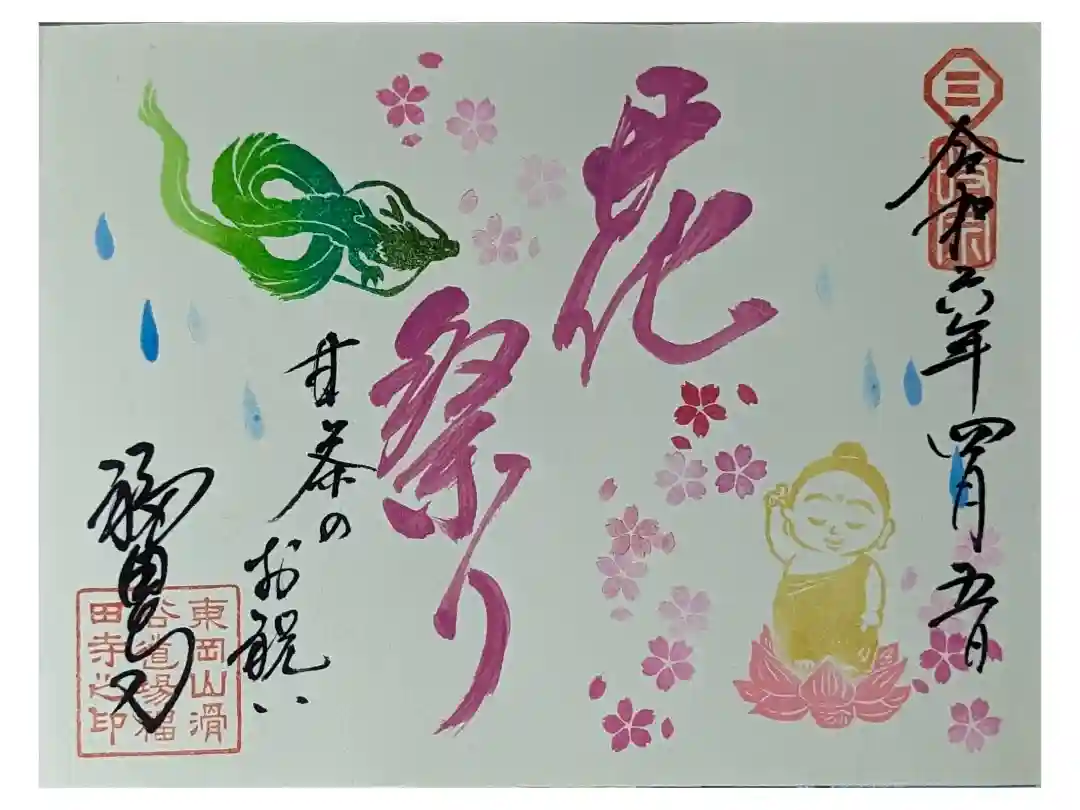 三
令和六年四月五日
花
祭り
甘茶の
お祝い
福田寺
東岡山滑
谷道場福
田寺之印